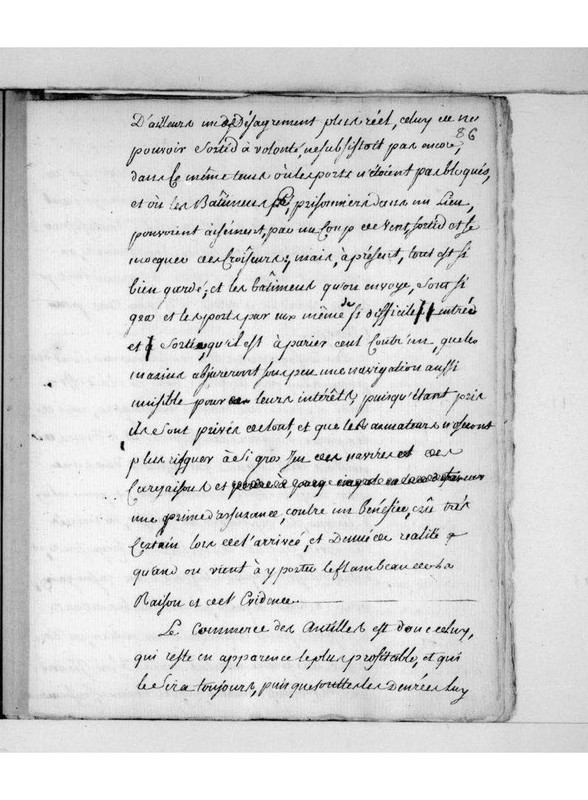 D'ailleurs un Désagrement plus réel, celuy de ne
86
pouvoir Sortir à volonté, ne subsistoit pas encore,
dans le même tems où les ports n'étoient pas bloqués,
et où les Bâtimens, prisonniers dans un Lieu,
pouvoient aisément, par un Coup de vent, sortir et se
mocquer des Croiseurs; mais, à présent, tout est si
bien gardé; et les bâtimens qu'on envoye, Sont si
gros et les ports par eux même si difficile entrée
et Sortie, qu'il est à parier cent Contr'un, que les
marins abjureront sous peu une navigation aussi
nuisible pour leurs intérêts, puisqu'étant pris
ils Sont privés de tout, et que les armateurs n'oseront
plus risquer à Si gros Jeu des navires et des
Cargaisons et
une prime d'assurance, contre un bénéfice, crû très
Certain lors de l'arrivée, et Dénué de realité
quand on vient à y porter le flambeau de la
Raison et de l'Evidence.
Le Commerce des Antilles est donc celuy,
qui reste en apparence le plus profitable, et qui
le Sera toujours, puisque toutes les Denrées Luy